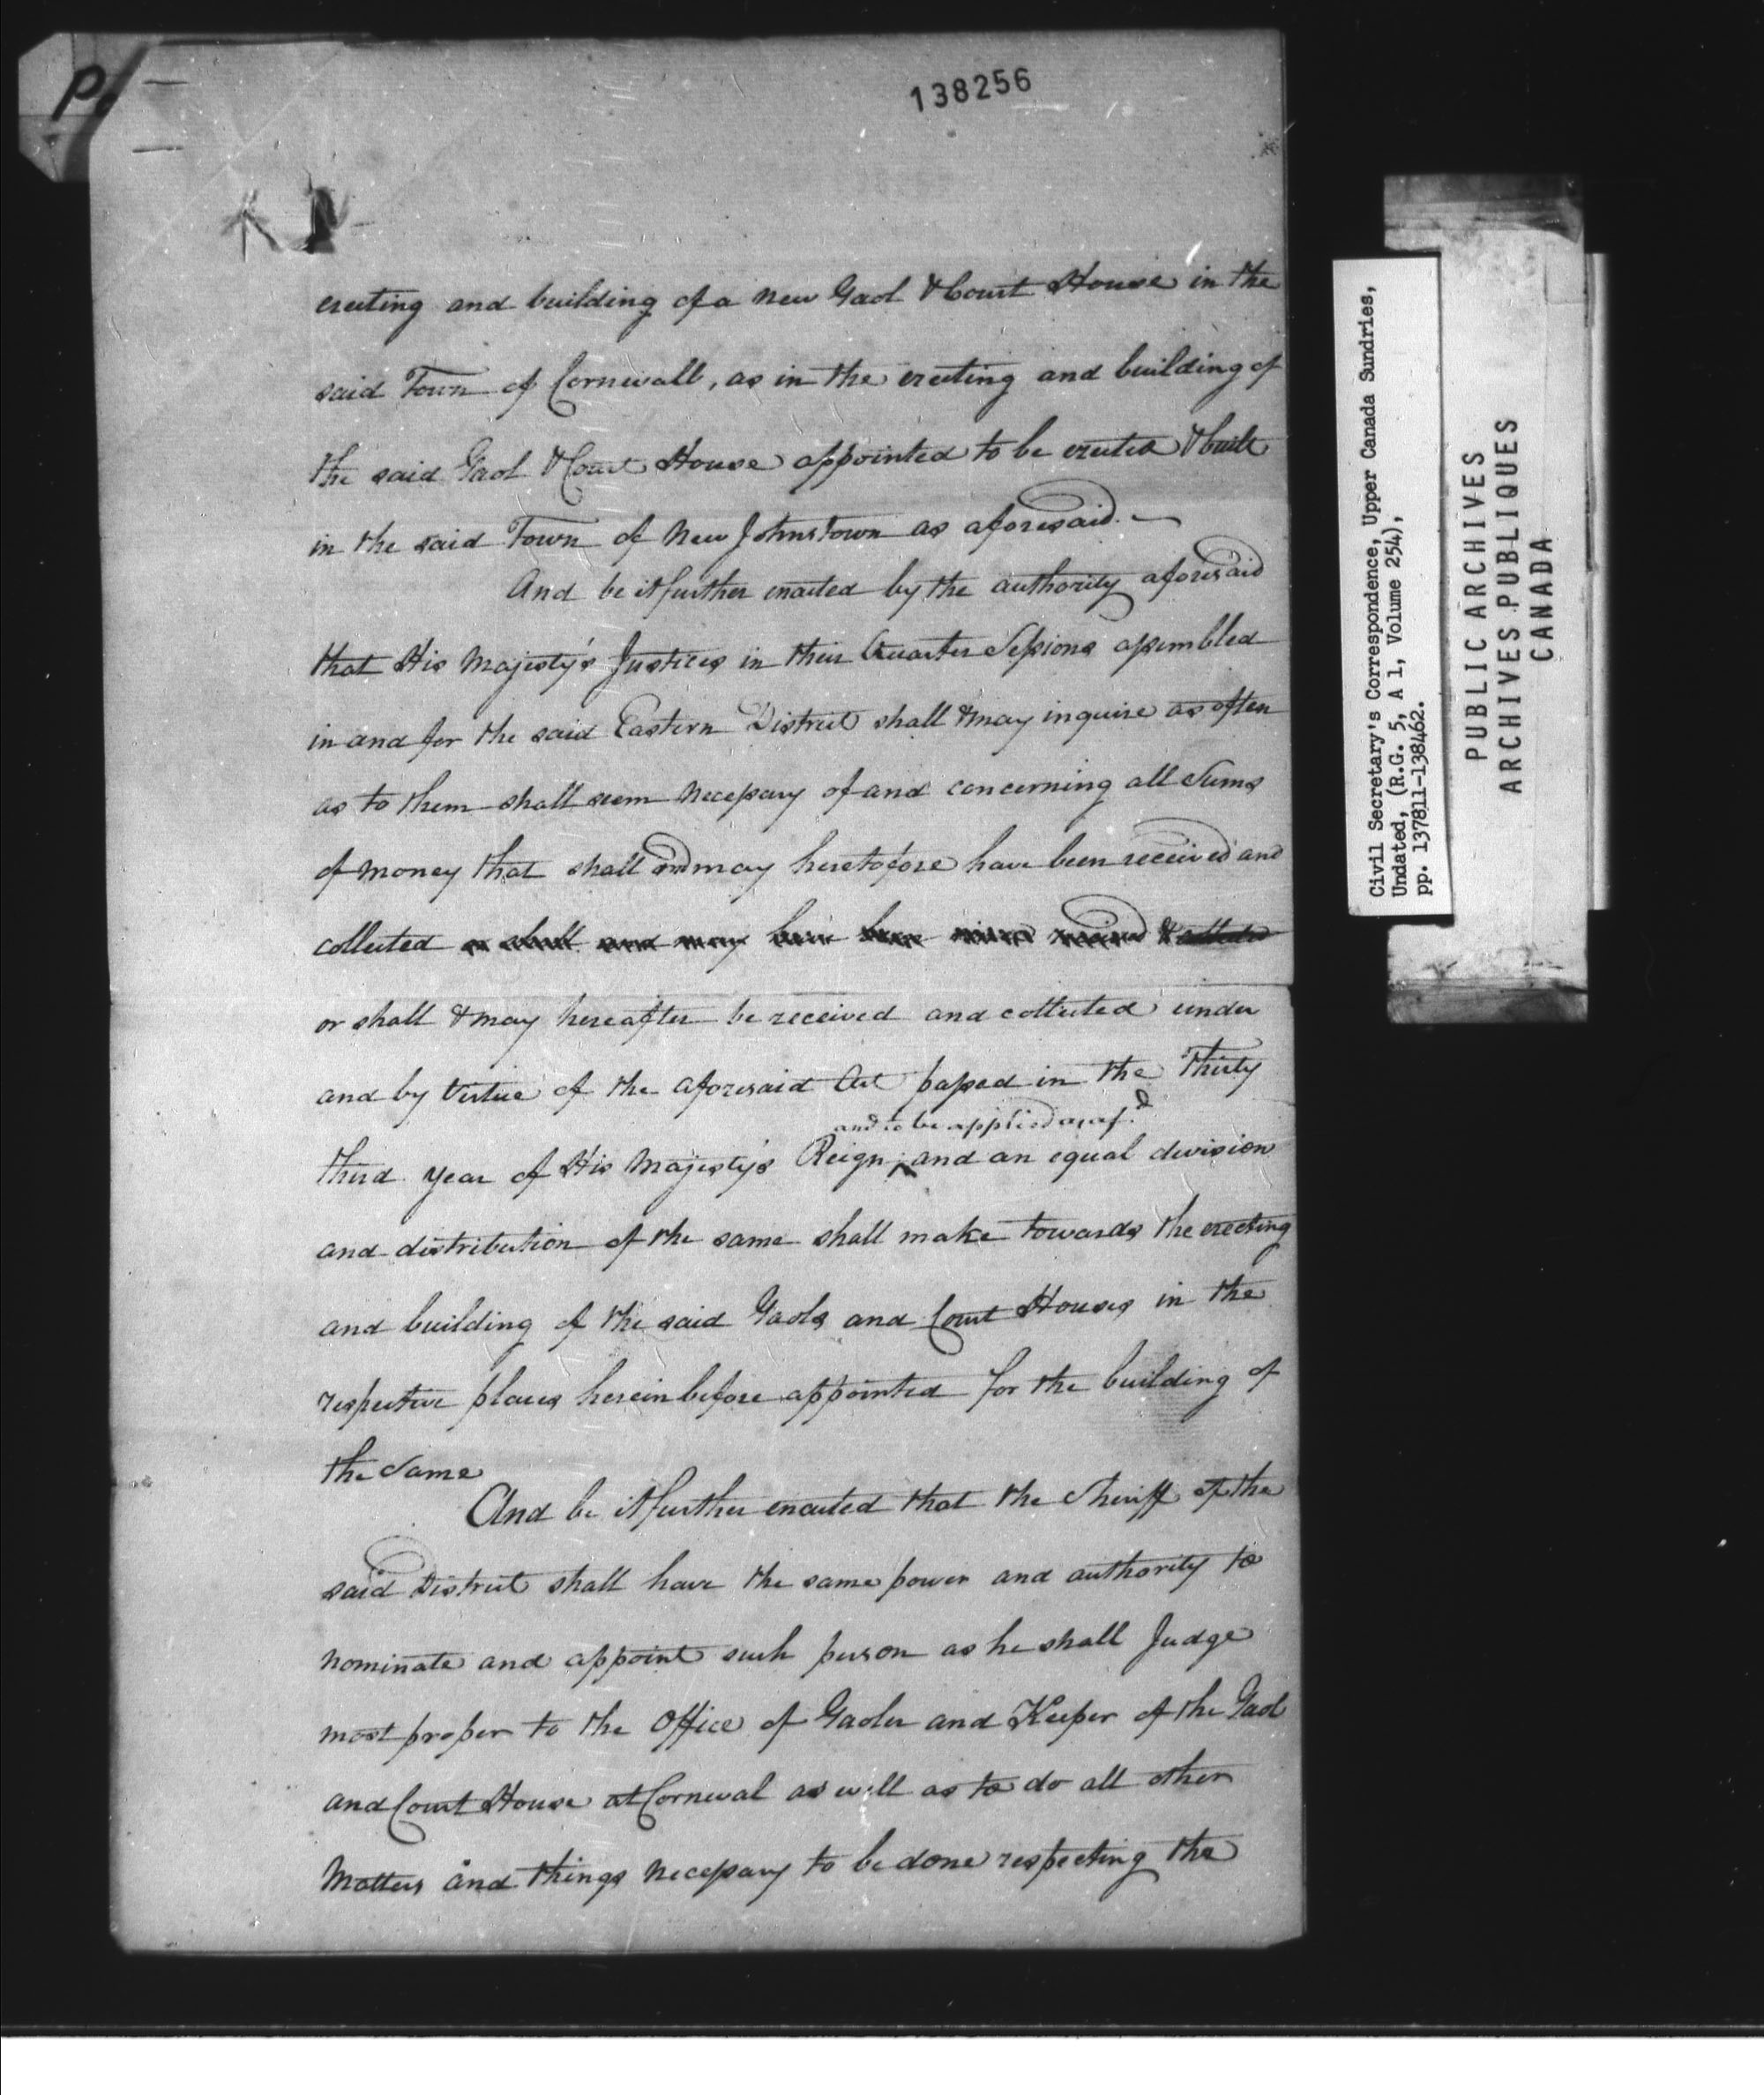 P.
138256
erecting and building of a new Gaol & Court House in the
said Town of Cornwall, as in the erecting and building of
the said Gaol & Court House appointed to be erected & built
in the said Town of New Johnstown as aforesaid.
And be it further enacted by the authority aforesaid
that His Majesty's Justices in their Quarter Sessions assembled
in and for the said Eastern District shall & may inquire as often
as to them shall seem necessary of and concerning all Sums
of money that shall and may heretofore have been received and
collected or shall and may have been received & collected
or shall & may hereafter be received and collected under
and by Virtue of the aforesaid Act passed in the Thirty
and to be applied as afd
third year of His Majesty's Reign; and an equal division
and distribution of the same shall make towards the erecting
and building of the said Gaols and Court Houses in the
respective places herein before appointed for the building of
the Same
And be it further enacted that the Sheriff of the
said District shall have the same power and authority to
nominate and appoint such person as he shall Judge
most proper to the Office of Gaoler and Keeper of the Gaol
and Court House at Cornwal as well as to do all other
Matters and things necessary to be done respecting the
Civil Secretary's Correspondence, Upper Canada Sundries,
Undated, (R.G. 5, A 1, Volume 254),
pp. 137811-138462.
PUBLIC ARCHIVES
ARCHIVES PUBLIQUES
CANADA